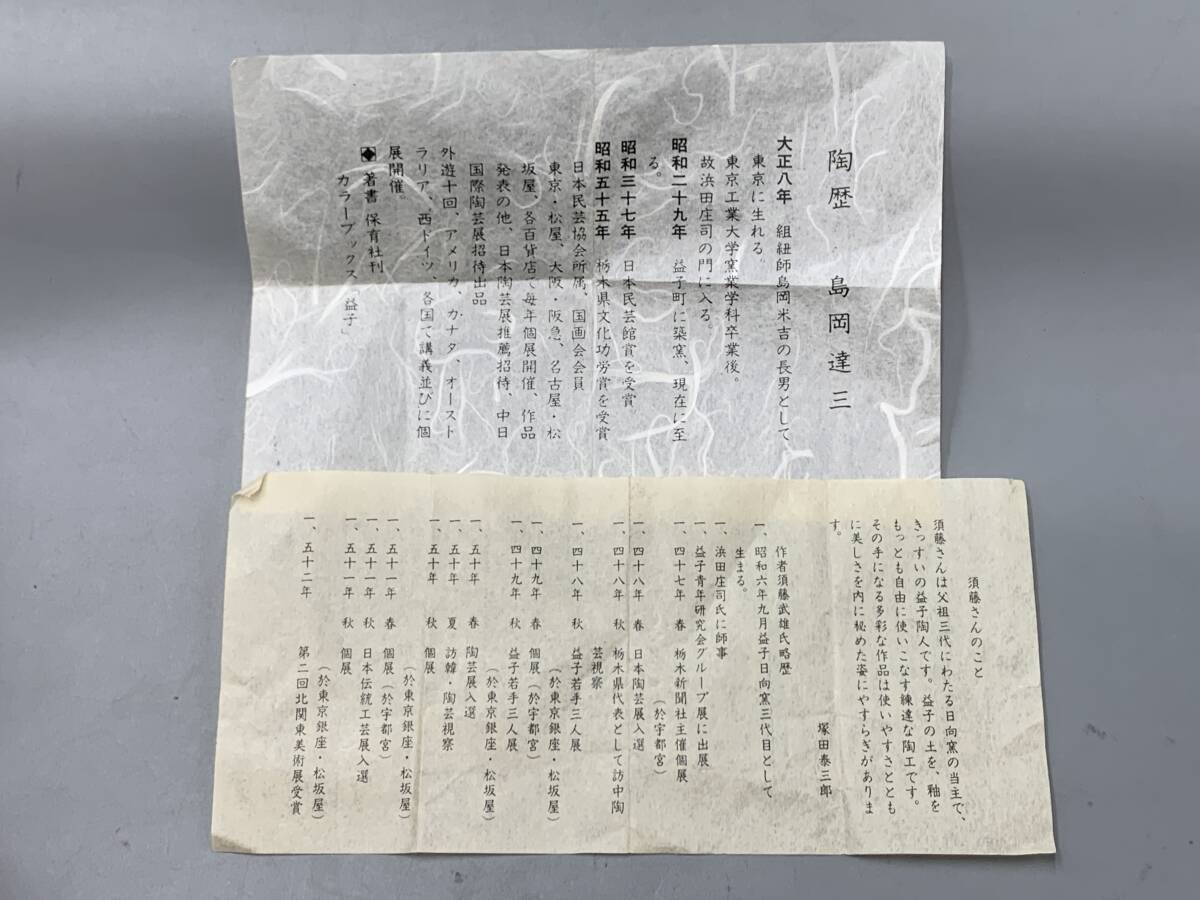 陶歴 島岡達三
大正八年 組紐師島岡米吉の長男として、
東京に生れる。
東京工業大学窯業学科卒業後。
故浜田庄司の門に入る。
昭和二十九年 益子町に築窯、現在に至
る。
昭和三十七年 日本民芸館賞を受賞
昭和五十五年 栃木県文化功労賞を受賞
日本民芸協会所属、国画会会員
東京・松屋、大阪・阪急、名古屋・松
坂屋、各百貨店で毎年個展開催、作品
発表の他、日本陶芸展推薦招待、中日
国際陶芸展招待出品
外遊十回、アメリカ、カナタ、オースト
ラリア、西ドイツ、各国で講義並びに個
展開催。
◆著書 保育社刊
カラーブックス「益子」
須藤さんのこと
塚田泰三郎
須藤さんは父祖三代にわたる日向窯の当主で、
きっすいの益子陶人です。益子の土を、釉を
もっとも自由に使いこなす練達な陶工です。
その手になる多彩な作品は使いやすさととも
に美しさを内に秘めた姿にやすらぎがありま
す。
作者須藤武雄氏略歴
一、昭和六年九月益子日向窯三代目として
生まる。
一、浜田庄司氏に師事
一、益子青年研究会グループ展に出展
一、四十七年 春 栃木新聞社主催個展
（於宇都宮）
一、四十八年 春 日本陶芸展入選
一、四十八年 秋 栃木県代表として訪中陶
芸視察
一、四十八年 秋 益子若手三人展
（於東京銀座・松坂屋）
一、四十九年 春 個展（於宇都宮）
一、四十九年 秋 益子若手三人展
（於東京銀座・松坂屋）
一、五十年 春 陶芸展入選
一、五十年 夏 訪韓・陶芸視察
一、五十年 秋 個展
（於東京銀座・松坂屋）
一、五十一年 春 個展（於宇都宮）
一、五十一年 秋 日本伝統工芸展入選
一、五十一年 秋 個展
（於東京銀座・松坂屋）
一、五十二年 第二回北関東美術展受賞